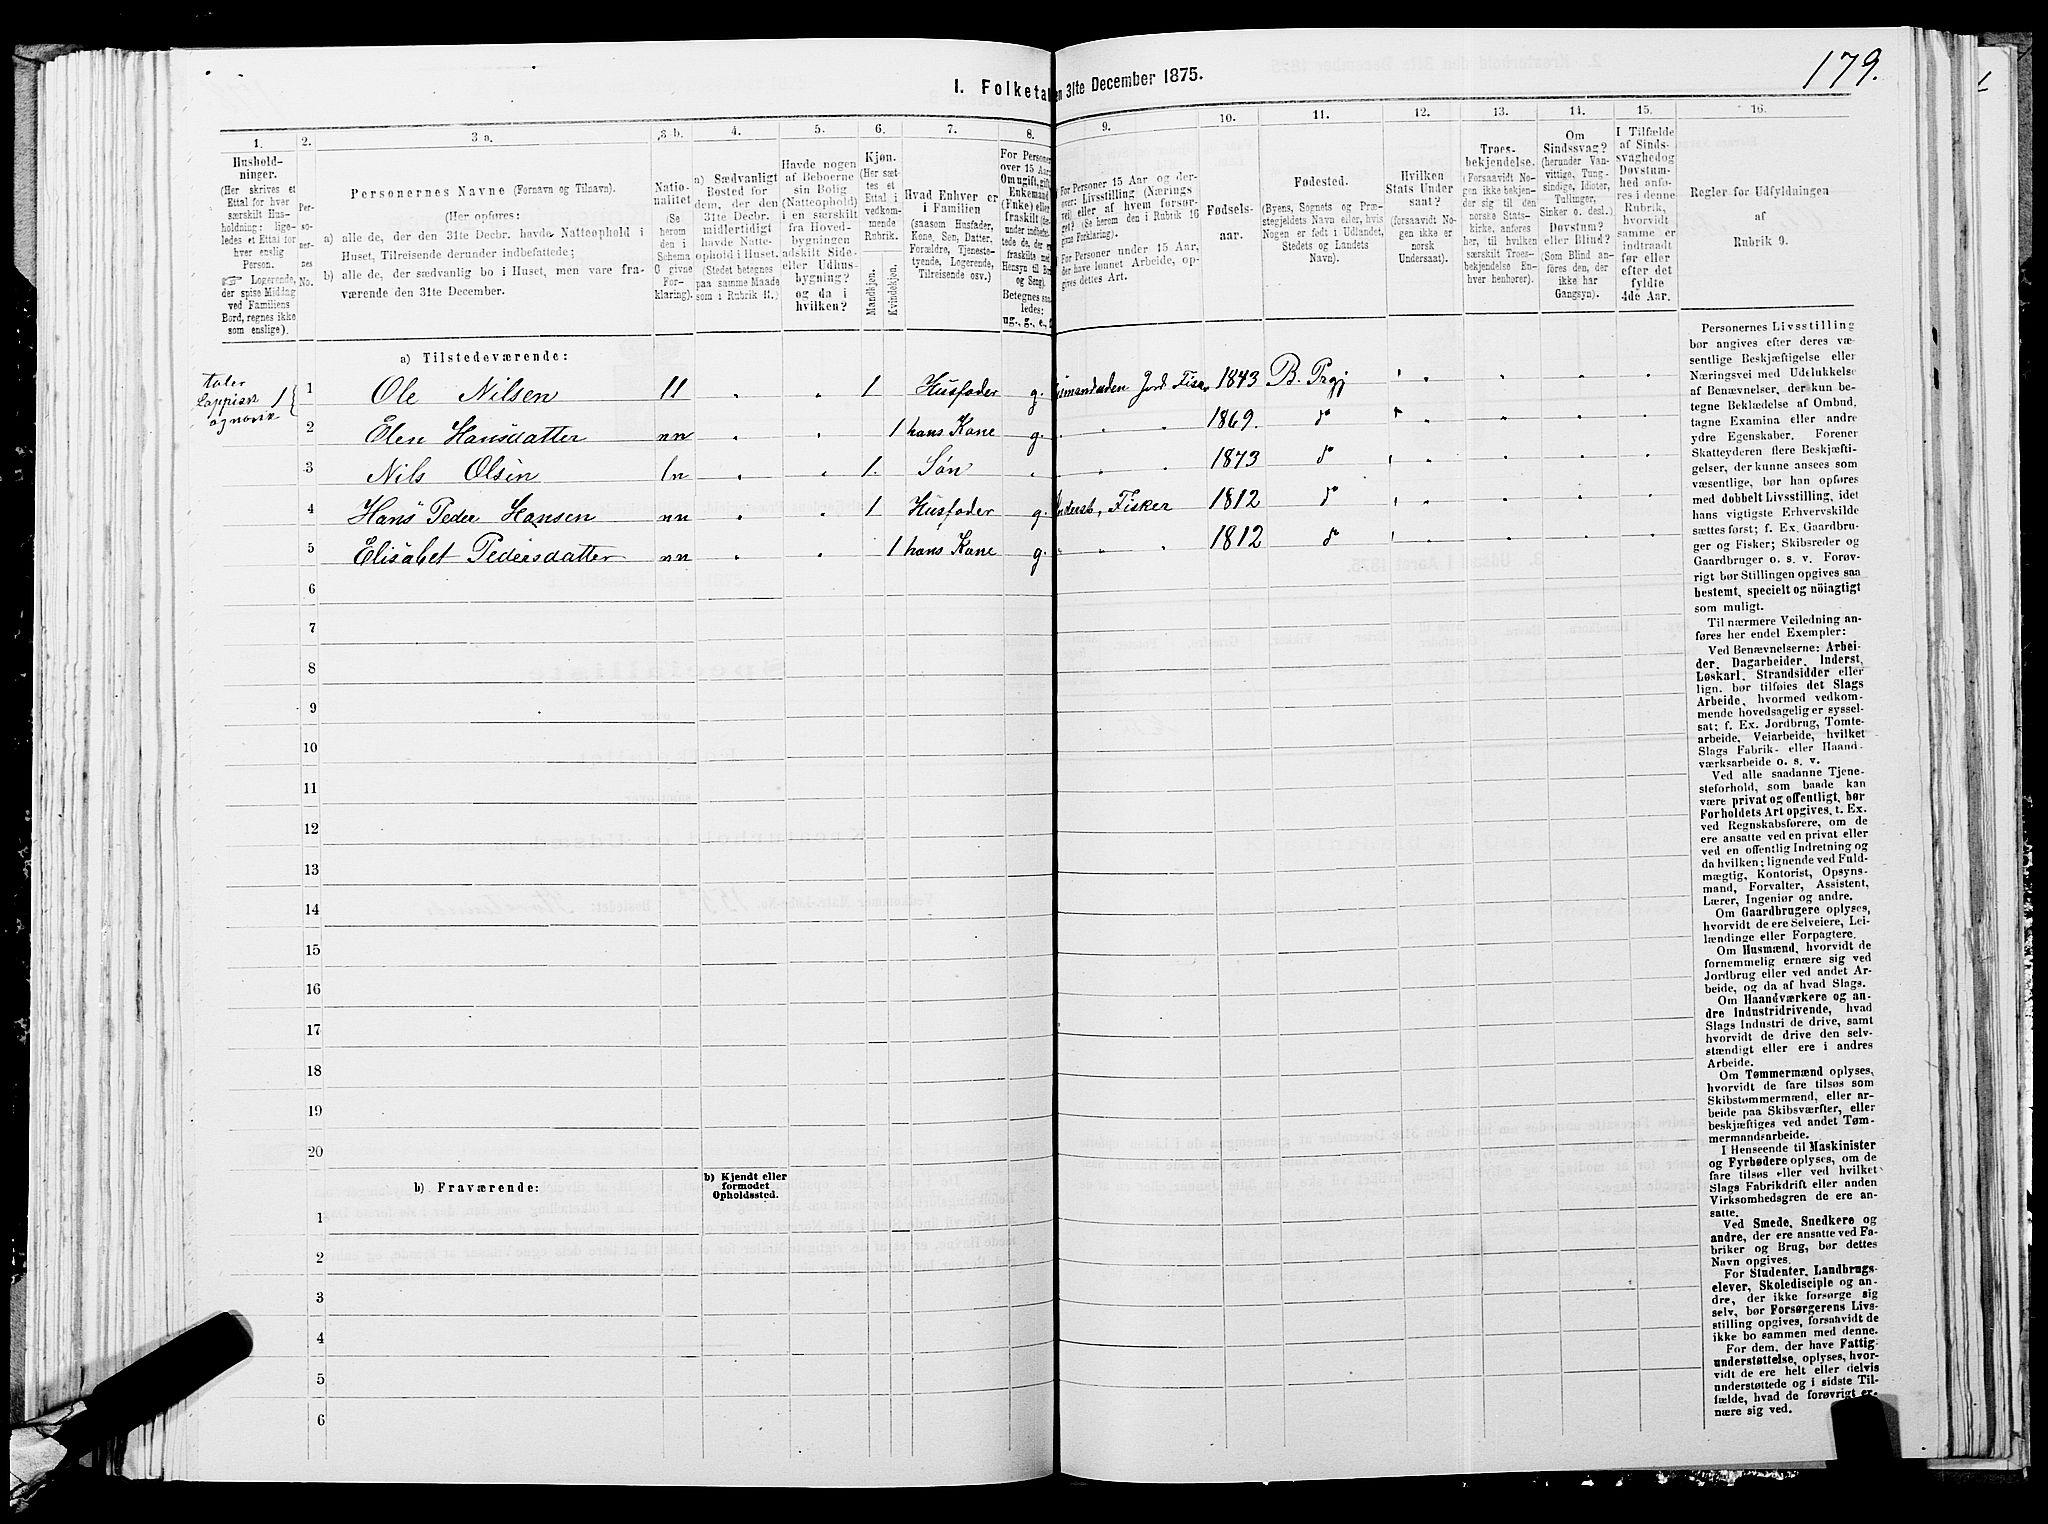 179.
I. Folketal
en 31te December 1875.
1.
Hushold-
ninger.
(Her skrives et
Ettal for hver
særskilt Hus-
holdning; lige-
ledes et Ettal for
hver enslig
Person.
Logerende,
der spise Middag
ved Familiens
Bord, regnes ikke
som enslige).
2.
Per-
so-
ner-
nes
No.
3 a.
Personernes Navne (Fornavn og Tilnavn).
(Her opføres:
a) alle de, der den 31te Decbr. havde Natteophold i
Huset, Tilreisende derunder indbefattede;
b) alle de, der sædvanlig bo i Huset, men vare fra-
værende den 31te December.
3 b.
Natio-
nalitet
(Se
herom
den i
Schema
O givne
For-
klaring).
4.
a) Sædvanligt
Bosted for
dem, der den
31te Decbr.
midlertidigt
havde Natte-
ophold i Huset.
(Stedet betegnes
paa samme Maade
som i Rubrik 11.)
5.
Havde nogen
af Beboerne
sin Bolig
(Natteophold)
i en særskilt
fra Hoved-
bygningen
adskilt Side-
eller Udhus-
bygning?
og da i
hvilken?
6.
Kjøn.
(Her sæt-
tes et
Ettal i
vedkom-
mende
Rubrik.
Mandkjøn.
Kvindekjøn.
7.
Hvad Enhver er
i Familien
(saasom Husfader,
Kone, Søn, Datter,
Forældre, Tjeneste-
tyende, Logerende,
Tilreisende osv.)
8.
For Personer
over 15 Aar
Om ugift, gift,
Enkemand
(Enke) eller
fraskilt
Betegnes saa-
ledes:
ug., g., e.,
9.
For Personer 15 Aar og der-
over: Livsstilling (Nærings
vei) eller af hvem forsør-
get? (Se herom den i Rubrik 16
givne Forklaring).
For Personer under 15 Aar,
der have lønnet Arbeide, op-
gives dettes Art.
10.
Fødsels-
aar.
11.
Fødested.
(Byens, Sognets og Præ-
stegjeldets Navn eller, hvis
Nogen er født i Udlandet,
Stedets og Landets
Navn).
12.
Hvilken
Stats Under
saat?
(forsaavidt No-
gen ikke er
norsk
Undersaat).
13.
Troes-
bekjendelse.
(Forsaavidt No-
gen ikke bekjen-
der sig til den
norske Stats-
kirke, anføres
her, til hvilken
særskilt Troes-
bekjendelse En-
hver henhører).
14.
Om
Sindssvag?
(herunder Van-
vittige, Tung-
sindige, Idioter,
Tullinger,
Sinker o. desl.)
Døvstum?
eller Blind?
(Som Blind an-
føres den, der
ikke har
Gangsyn).
15.
I Tilfælde
af Sinds-
svaghed og
Døvstum-
hed anfø-
res i denne
Rubrik,
hvorvidt
samme er
indtraadt
før eller
efter det
fyldte
4de Aar.
16.
Regler for Udfyldningen
af
Rubrik 9.
a) Tilstedeværende:
taler
Lappisk 1
og norsk
1 Ole Nilsen ll 1 Husfader g. Jord Fisk. 1843 B. Prgj
2 Elen Hansdatter nn 1 hans Kone g. 1869. do
3 Nils Olsen ln 1. Søn 1873 do
4 Hans Peder Hansen nn 1 Husfader g. Inderst, Fisker 1812 do
5 Elisabet Pedersdatter nn 1 hans Kone g. 1812 do
6
7
8
9
10
11
12
13
14
15
16
17
18
19
20
b) Fraværende:
b) Kjendt eller
formodet
Opholdssted.
1
2
3
4
5
6
Personernes Livsstilling
bør angives efter deres væ-
sentlige Beskjæftigelse eller
Næringsvei med Udelukkelse
af Benævnelser, der kun be-
tegne Beklædelse af Ombud,
tagne Examina eller andre
ydre Egenskaber. Forener
Skatteyderen flere Beskjæfti-
gelser, der kunne ansees som
væsentlige, bør han opføres
med dobbelt Livsstilling, idet
hans vigtigste Erhvervskilde
sættes først; f. Ex. Gaardbru-
ger og Fisker; Skibsreder og
Gaardbruger o. s. v. Forøv-
rigt bør Stillingen opgives saa
bestemt, specielt og nöiagtigt
som muligt.
Til nærmere Veiledning an-
føres her endel Exempler:
Ved Benævnelserne: Arbei-
der, Dagarbeider, Inderst,
Løskarl, Strandsidder eller
lign. bør tilføies det Slags
Arbeide, hvormed vedkom-
mende hovedsagelig er syssel-
sat; f. Ex. Jordbrug, Tomte-
arbeide, Veiarbeide, hvilket
Slags Fabrik- eller Haand-
værksarbeide o. s. v.
Ved alle saadanne Tjene-
steforhold, som baade kan
være privat og offentligt, bør
Forholdets Art opgives, t. Ex.
ved Regnskabsførere, om de
ere ansatte ved en privat eller
ved en offentlig Indretning og
da hvilken; lignende ved Fuld-
mægtig, Kontorist, Opsyns-
mand, Forvalter, Assistent,
Lærer, Ingeniør og andre.
Om Gaardbrugere oplyses,
hvorvidt de ere Selveiere, Lei-
lændinge eller Forpagtere.
Om Husmænd, hvorvidt de
fornemmelig ernære sig ved
Jordbrug eller ved andet Ar-
beide, og da af hvad Slags.
Om Haandværkere og an-
dre Industridrivende, hvad
Slags Industri de drive, samt
hvorvidt de drive den selv-
stændigt eller ere i andres
Arbeide.
Om Tømmermænd oplyses,
hvorvidt de fare tilsøs som
Skibstømmermænd, eller ar-
beide paa Skibsværfter, eller
beskjæftiges ved andet Tøm-
mermandsarbeide.
I Henseende til Maskinister
og Fyrbødere oplyses, om de
fare tilsøs eller ved hvilket
Slags Fabrikdrift eller anden
Virksomhedsgren de ere an-
satte.
Ved Smede, Snedkere og
andre, der ere ansatte ved Fa-
briker og Brug, bør dettes
Navn opgives.
For Studenter, Landbrugs-
elever, Skoledisciple og an-
dre, der ikke forsørge sig
selv, bør Forsørgerens Livs-
stilling opgives, forsaavidt de
ikke bo sammen med denne.
For dem, der have Fattig-
understøttelse, oplyses, hvor-
vidt de ere helt eller delvis
understøttede og i sidste Til-
fælde, hvad de forøvrigt er-
nære sig ved.